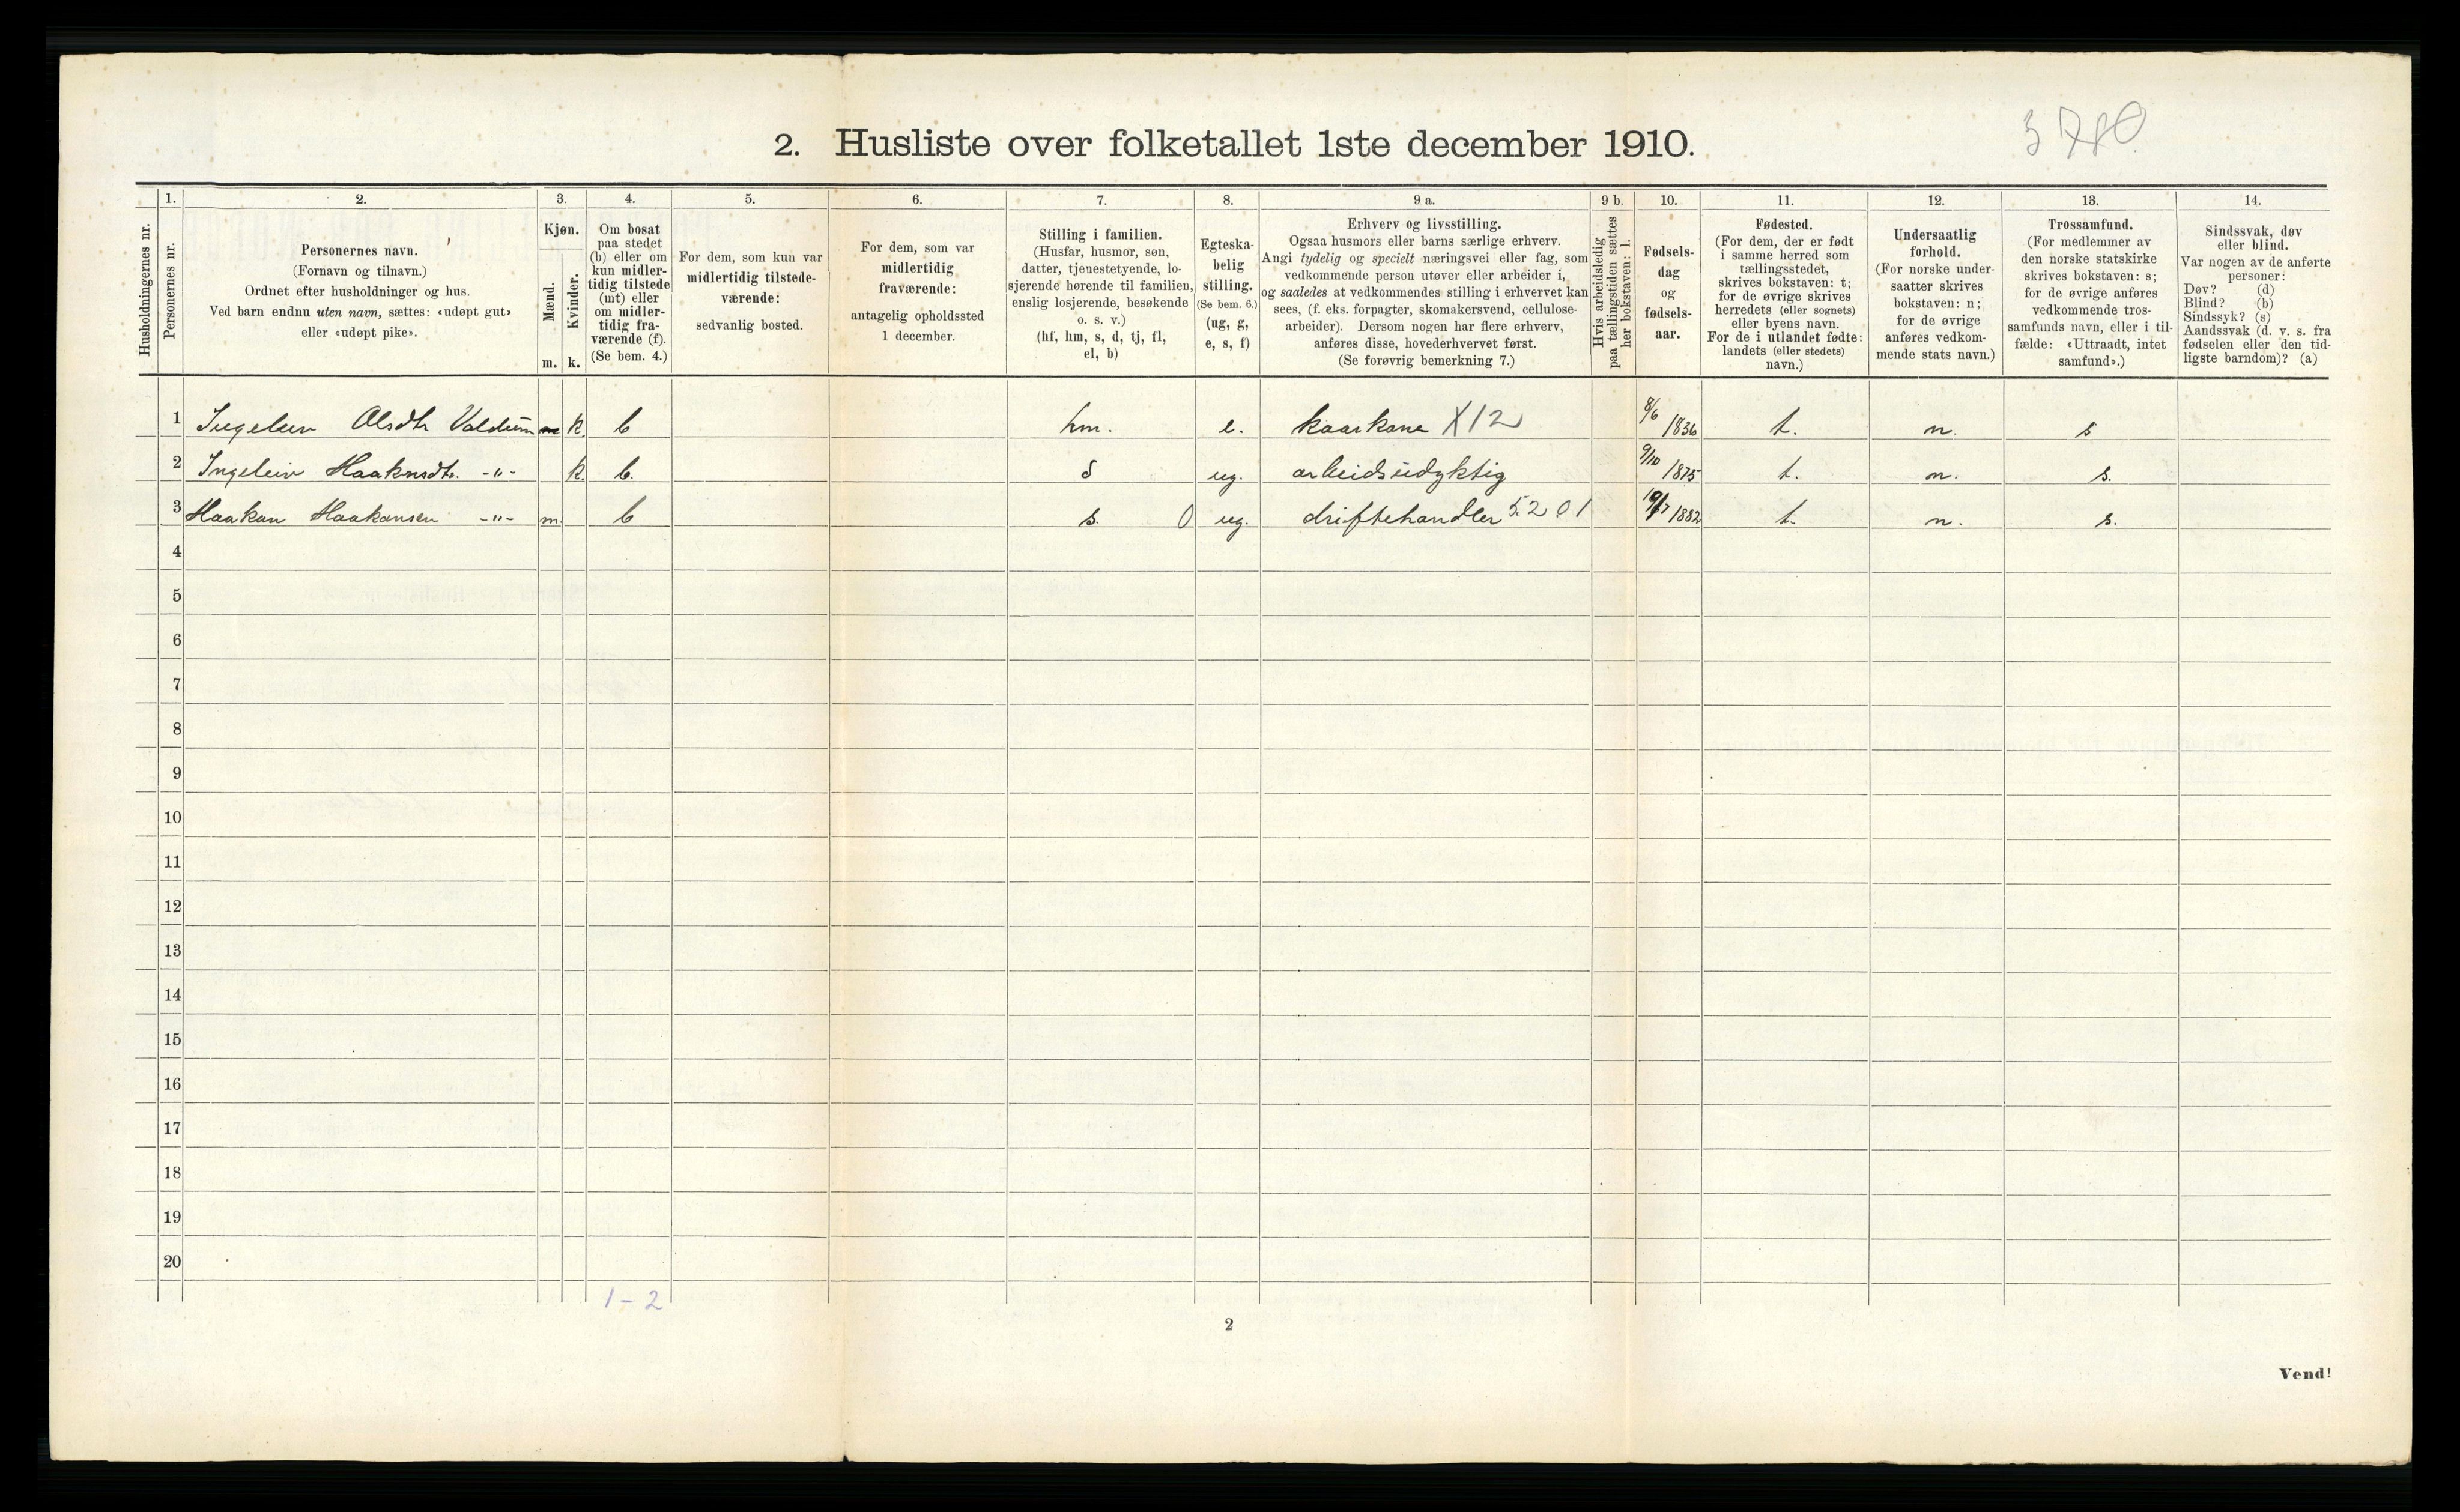 3780
2. Husliste over folketallet 1ste december 1910.
Husholdningernes nr.
1.
Personernes nr.
2.
Personernes navn.
(Fornavn og tilnavn.)
Ordnet efter husholdninger og hus.
Ved barn endnu uten navn, sættes: «udøpt gut»
eller «udøpt pike».
3.
Kjøn.
Mænd.
Kvinder.
m. k.
4.
Om bosat
paa stedet
(b) eller om
kun midler-
tidig tilstede
(mt) eller
om midler-
tidig fra-
værende (f).
(Se bem. 4.)
5.
For dem, som kun var
midlertidig tilstede-
værende:
sedvanlig bosted.
6.
For dem, som var
midlertidig
fraværende:
antagelig opholdssted
1 december.
7.
Stilling i familien.
(Husfar, husmor, søn,
datter, tjenestetyende, lo-
sjerende hørende til familien,
enslig losjerende, besøkende
o. s. v.)
(hf, hm, s, d, tj, fl,
el, b)
8.
Egteska-
belig
stilling.
(Se bem. 6.)
(ug, g,
e, s, f)
9 a.
Erhverv og livsstilling.
Ogsaa husmors eller barns særlige erhverv.
Angi tydelig og specielt næringsvei eller fag, som
vedkommende person utøver eller arbeider i,
og saaledes at vedkommendes stilling i erhvervet kan
sees, (f. eks. forpagter, skomakersvend, cellulose-
arbeider). Dersom nogen har flere erhverv,
anføres disse, hovederhvervet først.
(Se forøvrig bemerkning 7.)
9 b.
Hvis arbeidsledig
paa tællingstiden sættes
her bokstaven: l.
10.
Fødsels-
dag
og
fødsels-
aar.
11.
Fødested.
(For dem, der er født
i samme herred som
tællingsstedet,
skrives bokstaven: t;
for de øvrige skrives
herredets (eller sognets)
eller byens navn.
For de i utlandet fødte:
landets (eller stedets)
navn.)
12.
Undersaatlig
forhold.
(For norske under-
saatter skrives
bokstaven: n;
for de øvrige
anføres vedkom-
mende stats navn.)
13.
Trossamfund.
(For medlemmer av
den norske statskirke
skrives bokstaven: s;
for de øvrige anføres
vedkommende tros-
samfunds navn, eller i til-
fælde: «Uttraadt, intet
samfund».)
14.
Sindssvak, døv
eller blind.
Var nogen av de anførte
personer:
Døv? (d)
Blind? (b)
Sindssyk? (s)
Aandssvak (d. v. s. fra
fødselen eller den tid-
ligste barndom)? (a)
1 Ingeleiv Olsdtr Valdum m k. b hm. e. kaarkone X12 8/6 1836 t. n. s
2 Ingeleiv Haakonsdtr. -"- k. b. d ug. arbeidsudyktig 9/10 1875 t. n. s.
3 Haakon Haakonsen -"- m. b s. 0 ug. driftehandler 5201 19/7 1882 t. n. s.
4
5
6
7
8
9
10
11
12
13
14
15
16
17
18
19
20
1-2
2
Vend!